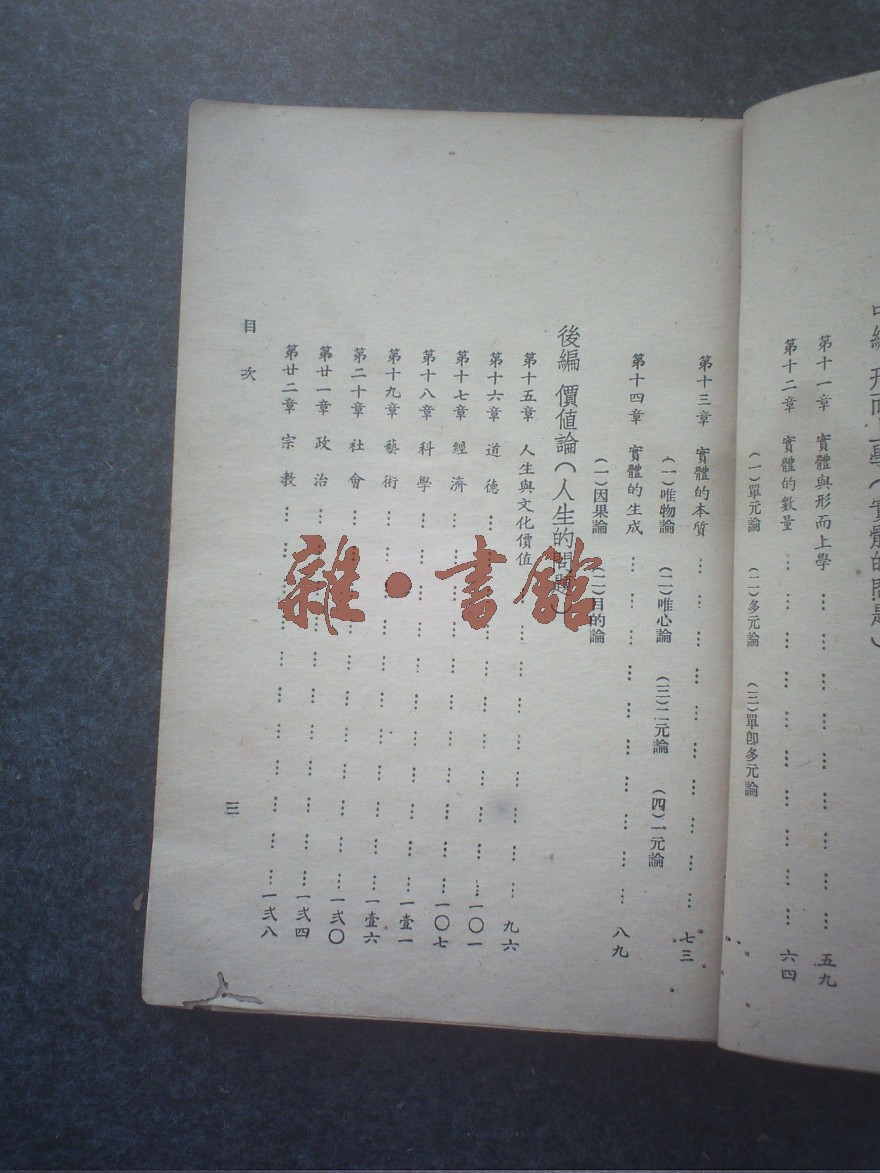 中編 形而上學(實體的問題)
第十一章 實體與形而上學 … … … … … … … … 五九
第十二章 實體的數量 … … … … … … … … … 六四
(一)單元論 (二)多元論 (三)單卽多元論
第十三章 實體的本質 … … … … … … … … … 七三
(一)唯物論 (二)唯心論 (三)二元論 (四)一元論
第十四章 實體的生成 … … … … … … … … … 八九
(一)因果論 (二)目的論
後編 價值論(人生的問題)
第十五章 人生與文化價值 … … … … … … … … 九六
第十六章 道德 … … … … … … … … … … 一〇一
第十七章 經濟 … … … … … … … … … … 一〇七
第十八章 科學 … … … … … … … … … … 一壹一
第十九章 藝術 … … … … … … … … … … 一壹六
第二十章 社會 … … … … … … … … … … 一弍〇
第廿一章 政治 … … … … … … … … … … 一弍四
第廿二章 宗教 … … … … … … … … … … 一弍八
目次
三
雜·書館